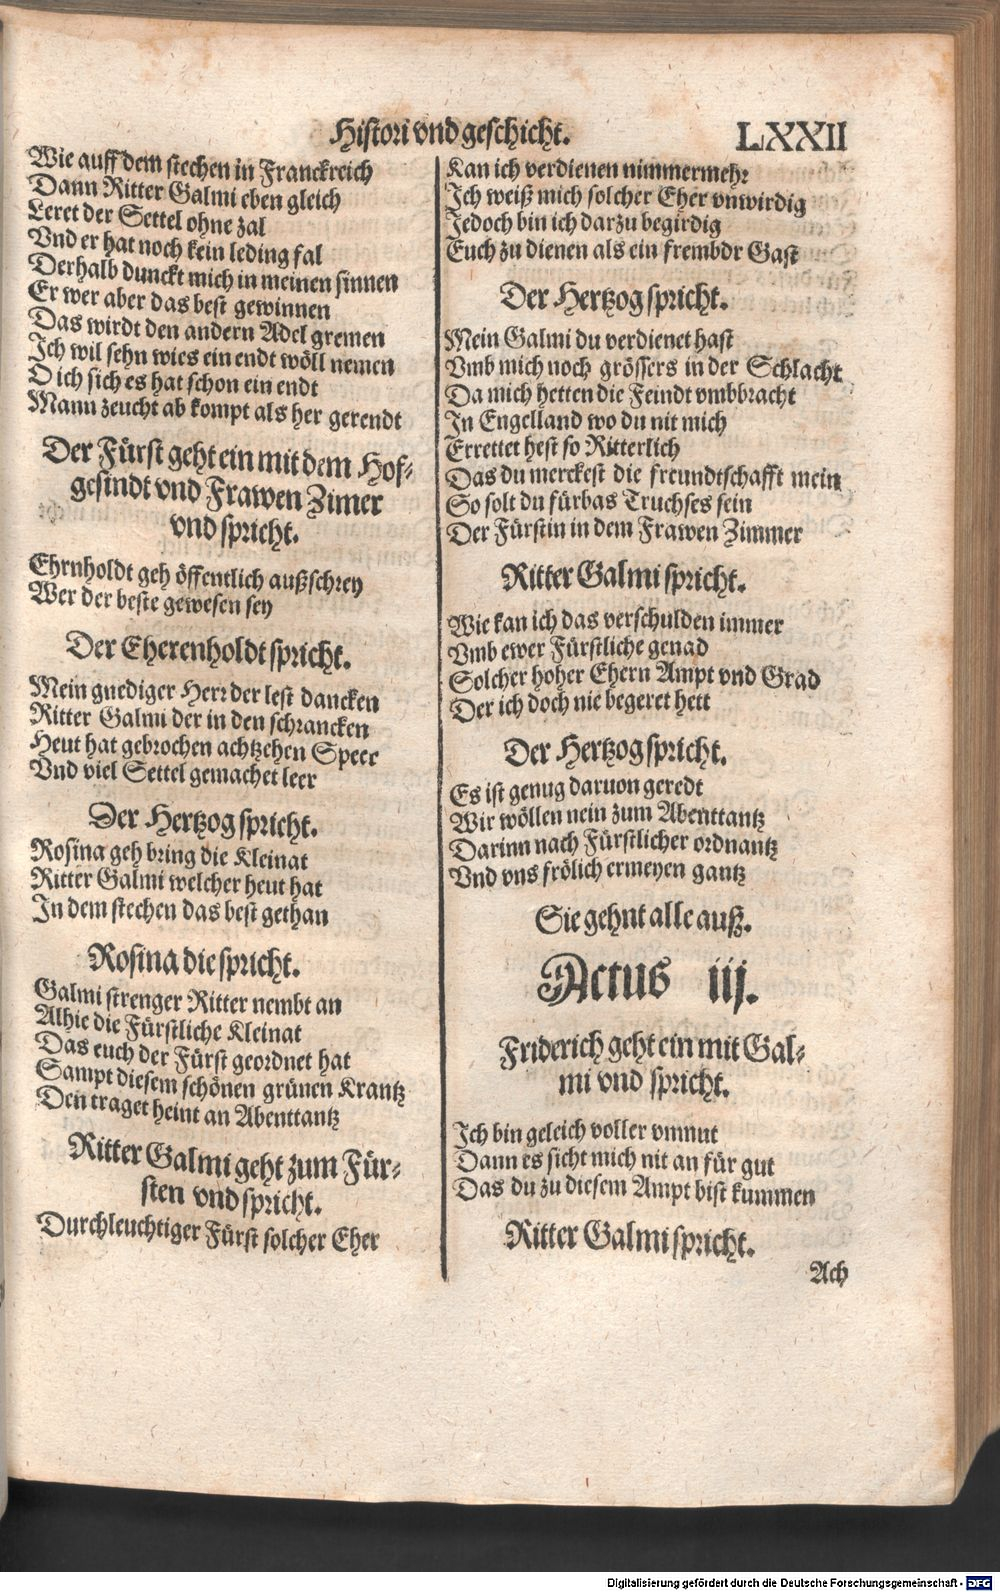 Histori vnd geschicht.
LXXII
Wie auff dem stechen in Franckreich
Dann Ritter Galmi eben gleich
Leret der Settel ohne zal
Vnd er hat noch kein leding fal
Derhalb dunckt mich in meinen sinnen
Er wer aber das best gewinnen
Das wirdt den andern Adel gremen
Ich wil sehn wies ein endt wöll nemen
O ich sich es hat schon ein endt
Mann zeucht ab kompt als her gerendt
Der Fürst geht ein mit dem Hof-
gesindt vnd Frawen Zimer
vnd spricht.
Ehrnholdt geh öffentlich außschrey
Wer der beste gewesen sey
Der Eherenholdt spricht.
Mein gnediger Herr der lest dancken
Ritter Galmi der in den schrancken
Heut hat gebrochen achtzehen Speer
Vnd viel Settel gemachet leer
Der Hertzog spricht.
Rosina geh bring die Kleinat
Ritter Galmi welcher heut hat
In dem stechen das best gethan
Rosina die spricht.
Galmi strenger Ritter nembt an
Alhie die Fürstliche Kleinat
Das euch der Fürst geordnet hat
Sampt diesem schönen grünen Krantz
Den traget heint an Abenttantz
Ritter Galmi geht zum Für-
sten vnd spricht.
Durchleuchtiger Fürst solcher Eher
Kan ich verdienen nimmermehr
Ich weiß mich solcher Eher vnwirdig
Jedoch bin ich darzu begirdig
Euch zu dienen als ein frembdr Gast
Der Hertzog spricht.
Mein Galmi du verdienet hast
Vmb mich noch grössers in der Schlacht
Da mich hetten die Feindt vmbbracht
In Engelland wo du nit mich
Errettet hest so Ritterlich
Das du merckest die freundtschafft mein
So solt du fürbas Truchses sein
Der Fürstin in dem Frawen Zimmer
Ritter Galmi spricht.
Wie kan ich das verschulden immer
Vmb ewer Fürstliche genad
Solcher hoher Ehern Ampt vnd Grad
Der ich doch nie begeret hett
Der Hertzog spricht.
Es ist genug daruon geredt
Wir wöllen nein zum Abenttantz
Darinn nach Fürstlicher ordnantz
Vnd vns frölich ermeyen gantz
Sie gehnt alle auß.
Actus iij.
Friderich geht ein mit Gal-
mi vnd spricht.
Ich bin geleich voller vnmut
Dann es sicht mich nit an für gut
Das du zu diesem Ampt bist kummen
Ritter Galmi spricht.
Ach
Digitalisierung gefördert durch die Deutsche Forschungsgemeinschaft - DFG